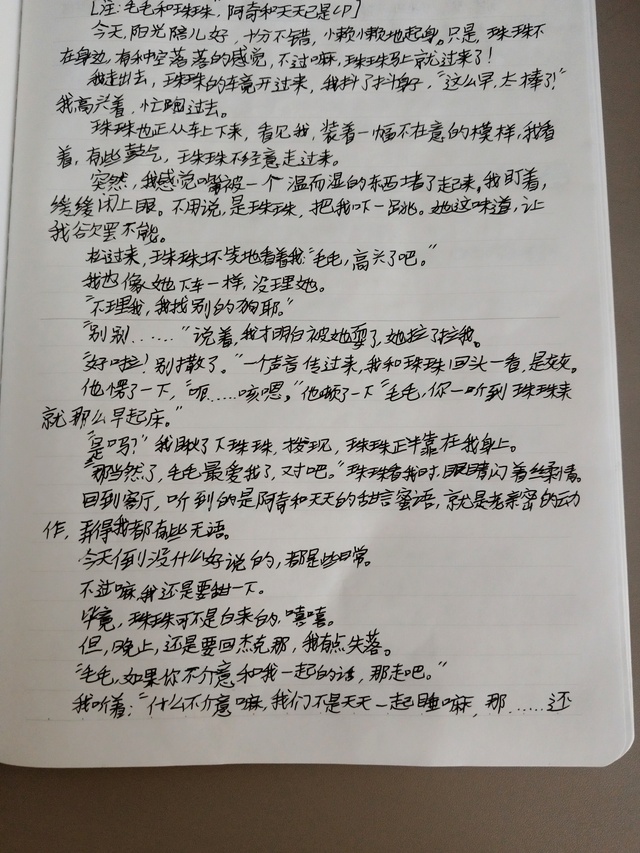 [注:毛毛和珠珠,阿奇和天天已是CP]
今天,阳光陪儿好,十分不错,小懒小懒地起身。只是,珠珠不
在身边,有种空落落的感觉,不过嘛,珠珠马上就过来了!
我走出去,珠珠的车竟开过来,我抖了抖身子,"这么早,太棒了!"
我高兴着,忙跑过去。
珠珠也正从车上下来,看见我,装着一幅不在意的模样,我看
着,有些生气,珠珠不经意走过来。
突然,我感觉嘴被一个温而湿的东西堵了起来,我盯着,
缓缓闭上眼。不用说,是珠珠,把我吓一跳。她这味道,让
我欲罢不能。
松过来,珠珠坏笑地看着我:"毛毛,高兴了吧。"
我也像她下车一样,没理她。
"不理我,我找别的狗耶。"
"别别……"说着,我才明白被她耍了,她拉了拉我。
"好啦!别撒了。"一个声音传过来,我和珠珠回头一看,是灰灰。
他愣了一下,"呃……咳嗯。"他顺了一下"毛毛,你一听到珠珠来
就那么早起床。"
"是吗?"我瞅了下珠珠,发现,珠珠正半靠在我身上。
"那当然了,毛毛最爱我了,对吧。"珠珠看我时,眼睛闪着丝柔情。
回到客厅,听到的是阿奇和天天的甜言蜜语,就是老亲密的动
作,弄得我都有些无语。
今天倒没什么好说的,都是些日常。
不过嘛,我还是要甜一下。
毕竟,珠珠可不是白来的,嘻嘻。
但,晚上,还是要回杰克那,我有点失落。
"毛毛,如果你不介意和我一起的话,那走吧。"
我听着:"什么不介意嘛,我们不是天天一起睡嘛,那……还